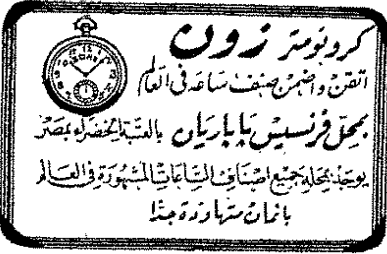 كرونومتر زون
اتقن واضمن صنف ساعة فى العالم
بمحل فرنسيس پاپاريان بالعتبة الخضراء بمصر
يوجد بمحله جميع اصناف الساعات المشهورة فى العالم
باثمان متهاودة جدا